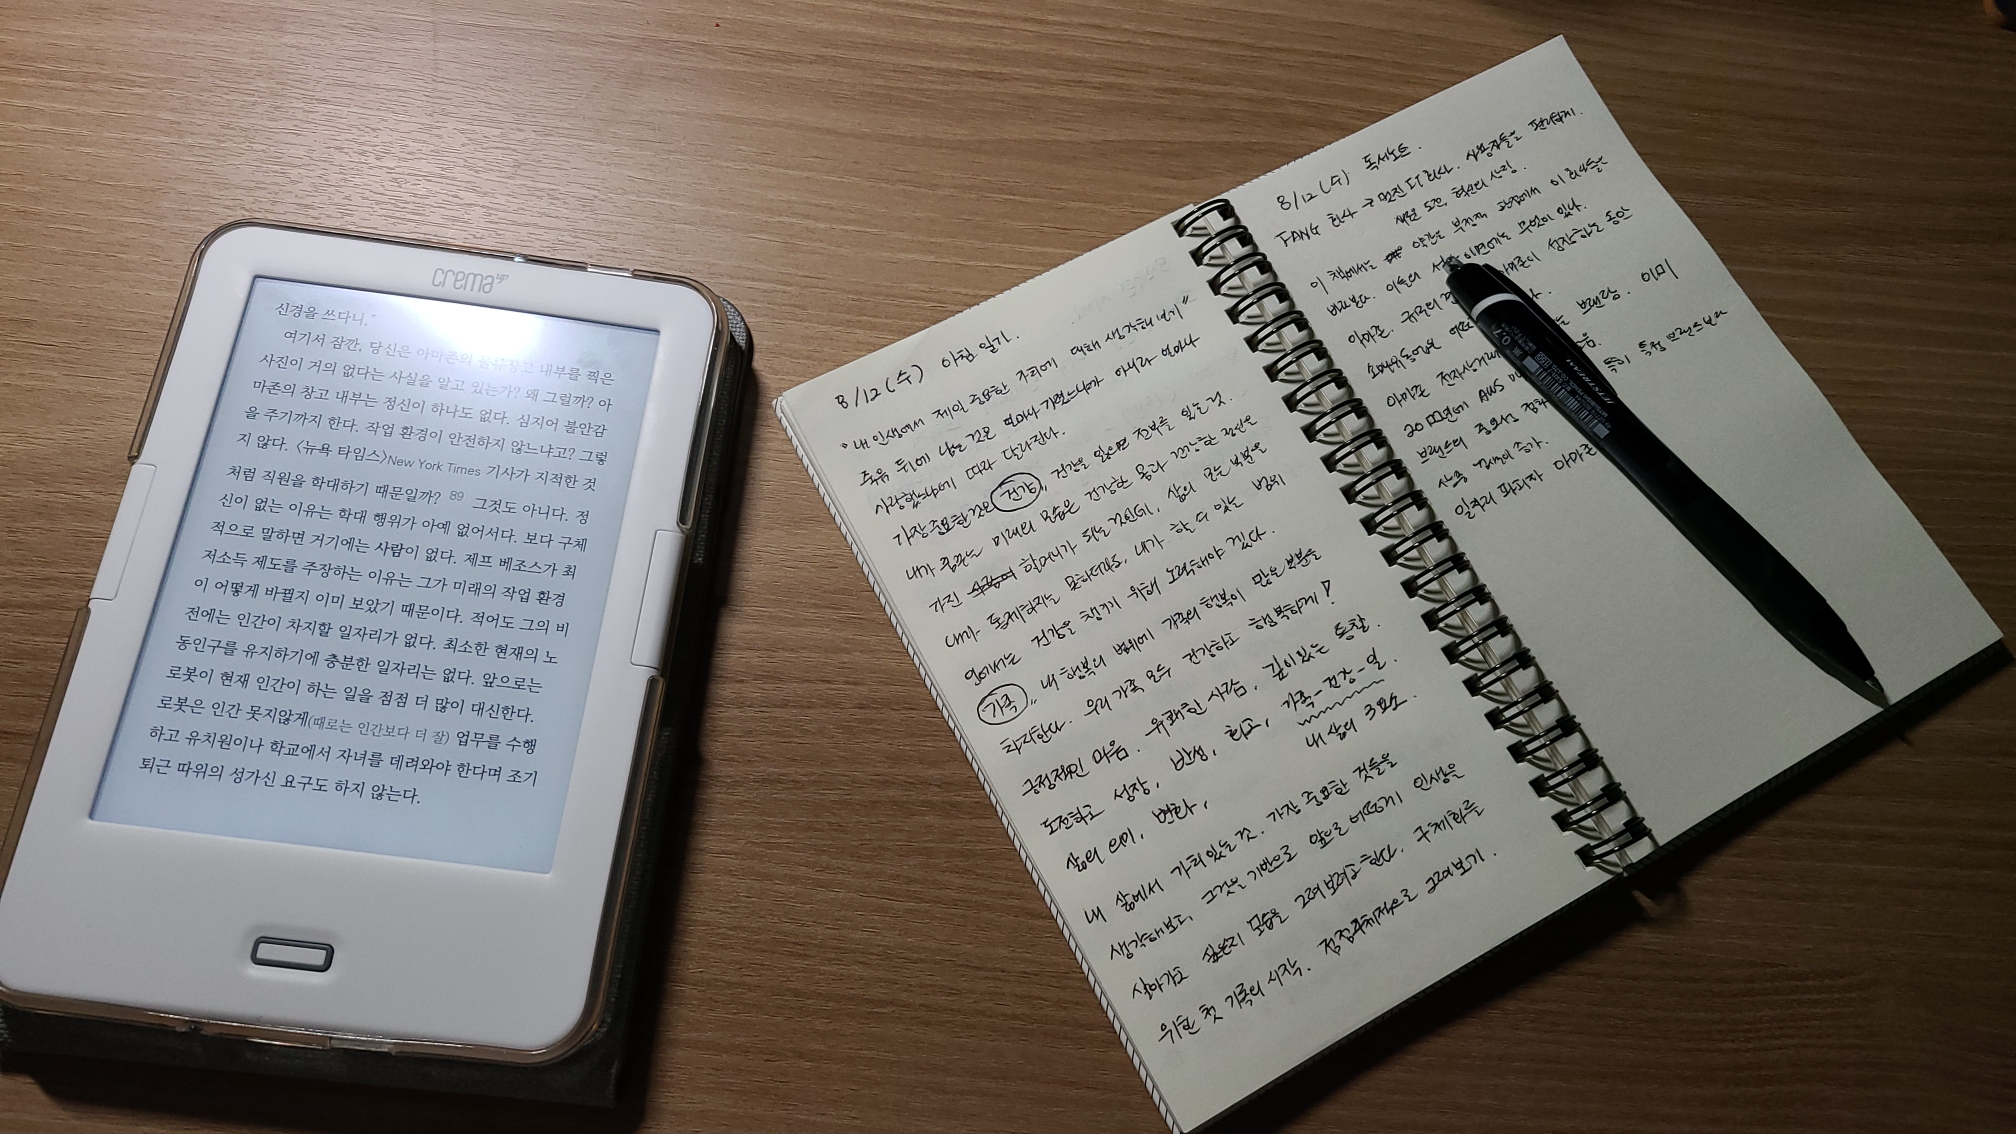 crema
신경을 쓰다니.”
여기서 잠깐, 당신은 아마존의 물류창고 내부를 찍은
사진이 거의 없다는 사실을 알고 있는가? 왜 그럴까? 아
마존의 창고 내부는 정신이 하나도 없다. 심지어 불안감
을 주기까지 한다. 작업 환경이 안전하지 않느냐고? 그렇
지 않다. 〈뉴욕 타임스〉New York Times 기사가 지적한 것
처럼 직원을 학대하기 때문일까? 89 그것도 아니다. 정
신이 없는 이유는 학대 행위가 아예 없어서다. 보다 구체
적으로 말하면 거기에는 사람이 없다. 제프 베조스가 최
저소득 제도를 주장하는 이유는 그가 미래의 작업 환경
이 어떻게 바뀔지 이미 보았기 때문이다. 적어도 그의 비
전에는 인간이 차지할 일자리가 없다. 최소한 현재의 노
동인구를 유지하기에 충분한 일자리는 없다. 앞으로는
로봇이 현재 인간이 하는 일을 점점 더 많이 대신한다.
로봇은 인간 못지않게(때로는 인간보다 더 잘) 업무를 수행
하고 유치원이나 학교에서 자녀를 데려와야 한다며 조기
퇴근 따위의 성가신 요구도 하지 않는다.
8/12 (수) 아침 일기.
"내 인생에서 제일 중요한 가치에 대해 생각해 보기"
죽음 뒤에 남는 것은 얼마나 가졌느냐가 아니라 얼마나
사랑했느냐에 따라 달라진다.
가장 중요한 것은 건강, 건강을 잃으면 전부를 잃는 것.
내가 꿈꾸는 미래의 모습은 건강한 몸과 건강한 정신을
가진 할머니가 되는 것인데, 삶의 모든 부분을
내가 통제하지는 못하더라도, 내가 할 수 있는 범위
안에서는 건강을 챙기기 위해 노력해야겠다.
가족, 내 행복의 범위에 가족의 행복이 많은 부분을
차지한다. 우리 가족 모두 건강하고 행복하게!
긍정적인 마음. 유쾌한 사람, 깊이있는 통찰.
도전하고 성장, 반성, 회고, 가족-건강-일
삶의 의미, 변화, 내 삶의 3요소.
내 삶에서 가치있는 것. 가장 중요한 것들을
생각해보고, 그것을 기반으로 앞으로 어떻게 인생을
살아가고 싶은지 모습을 그려보려고 한다. 구체화를
위한 첫 기록의 시작. 점점 구체적으로 그려보기.
8/12 (수) 독서노트.
FANG 회사 → 멋진 IT 회사. 사용자들을 편리하게.
새로운 도전, 혁신의 상징.
이 책에서는 약간은 부정적 관점에서 이 회사들을
바라본다. 이들의 이면에는 무엇이 있나.
아마존. 성장하는 동안
소매유통업은
아마존 전자상거래 브랜딩. 이미
20년에 AWS
브랜드의 중요성 특히 특정 브랜드보다
상품 검색의 증가.
일자리 파괴자 아마존